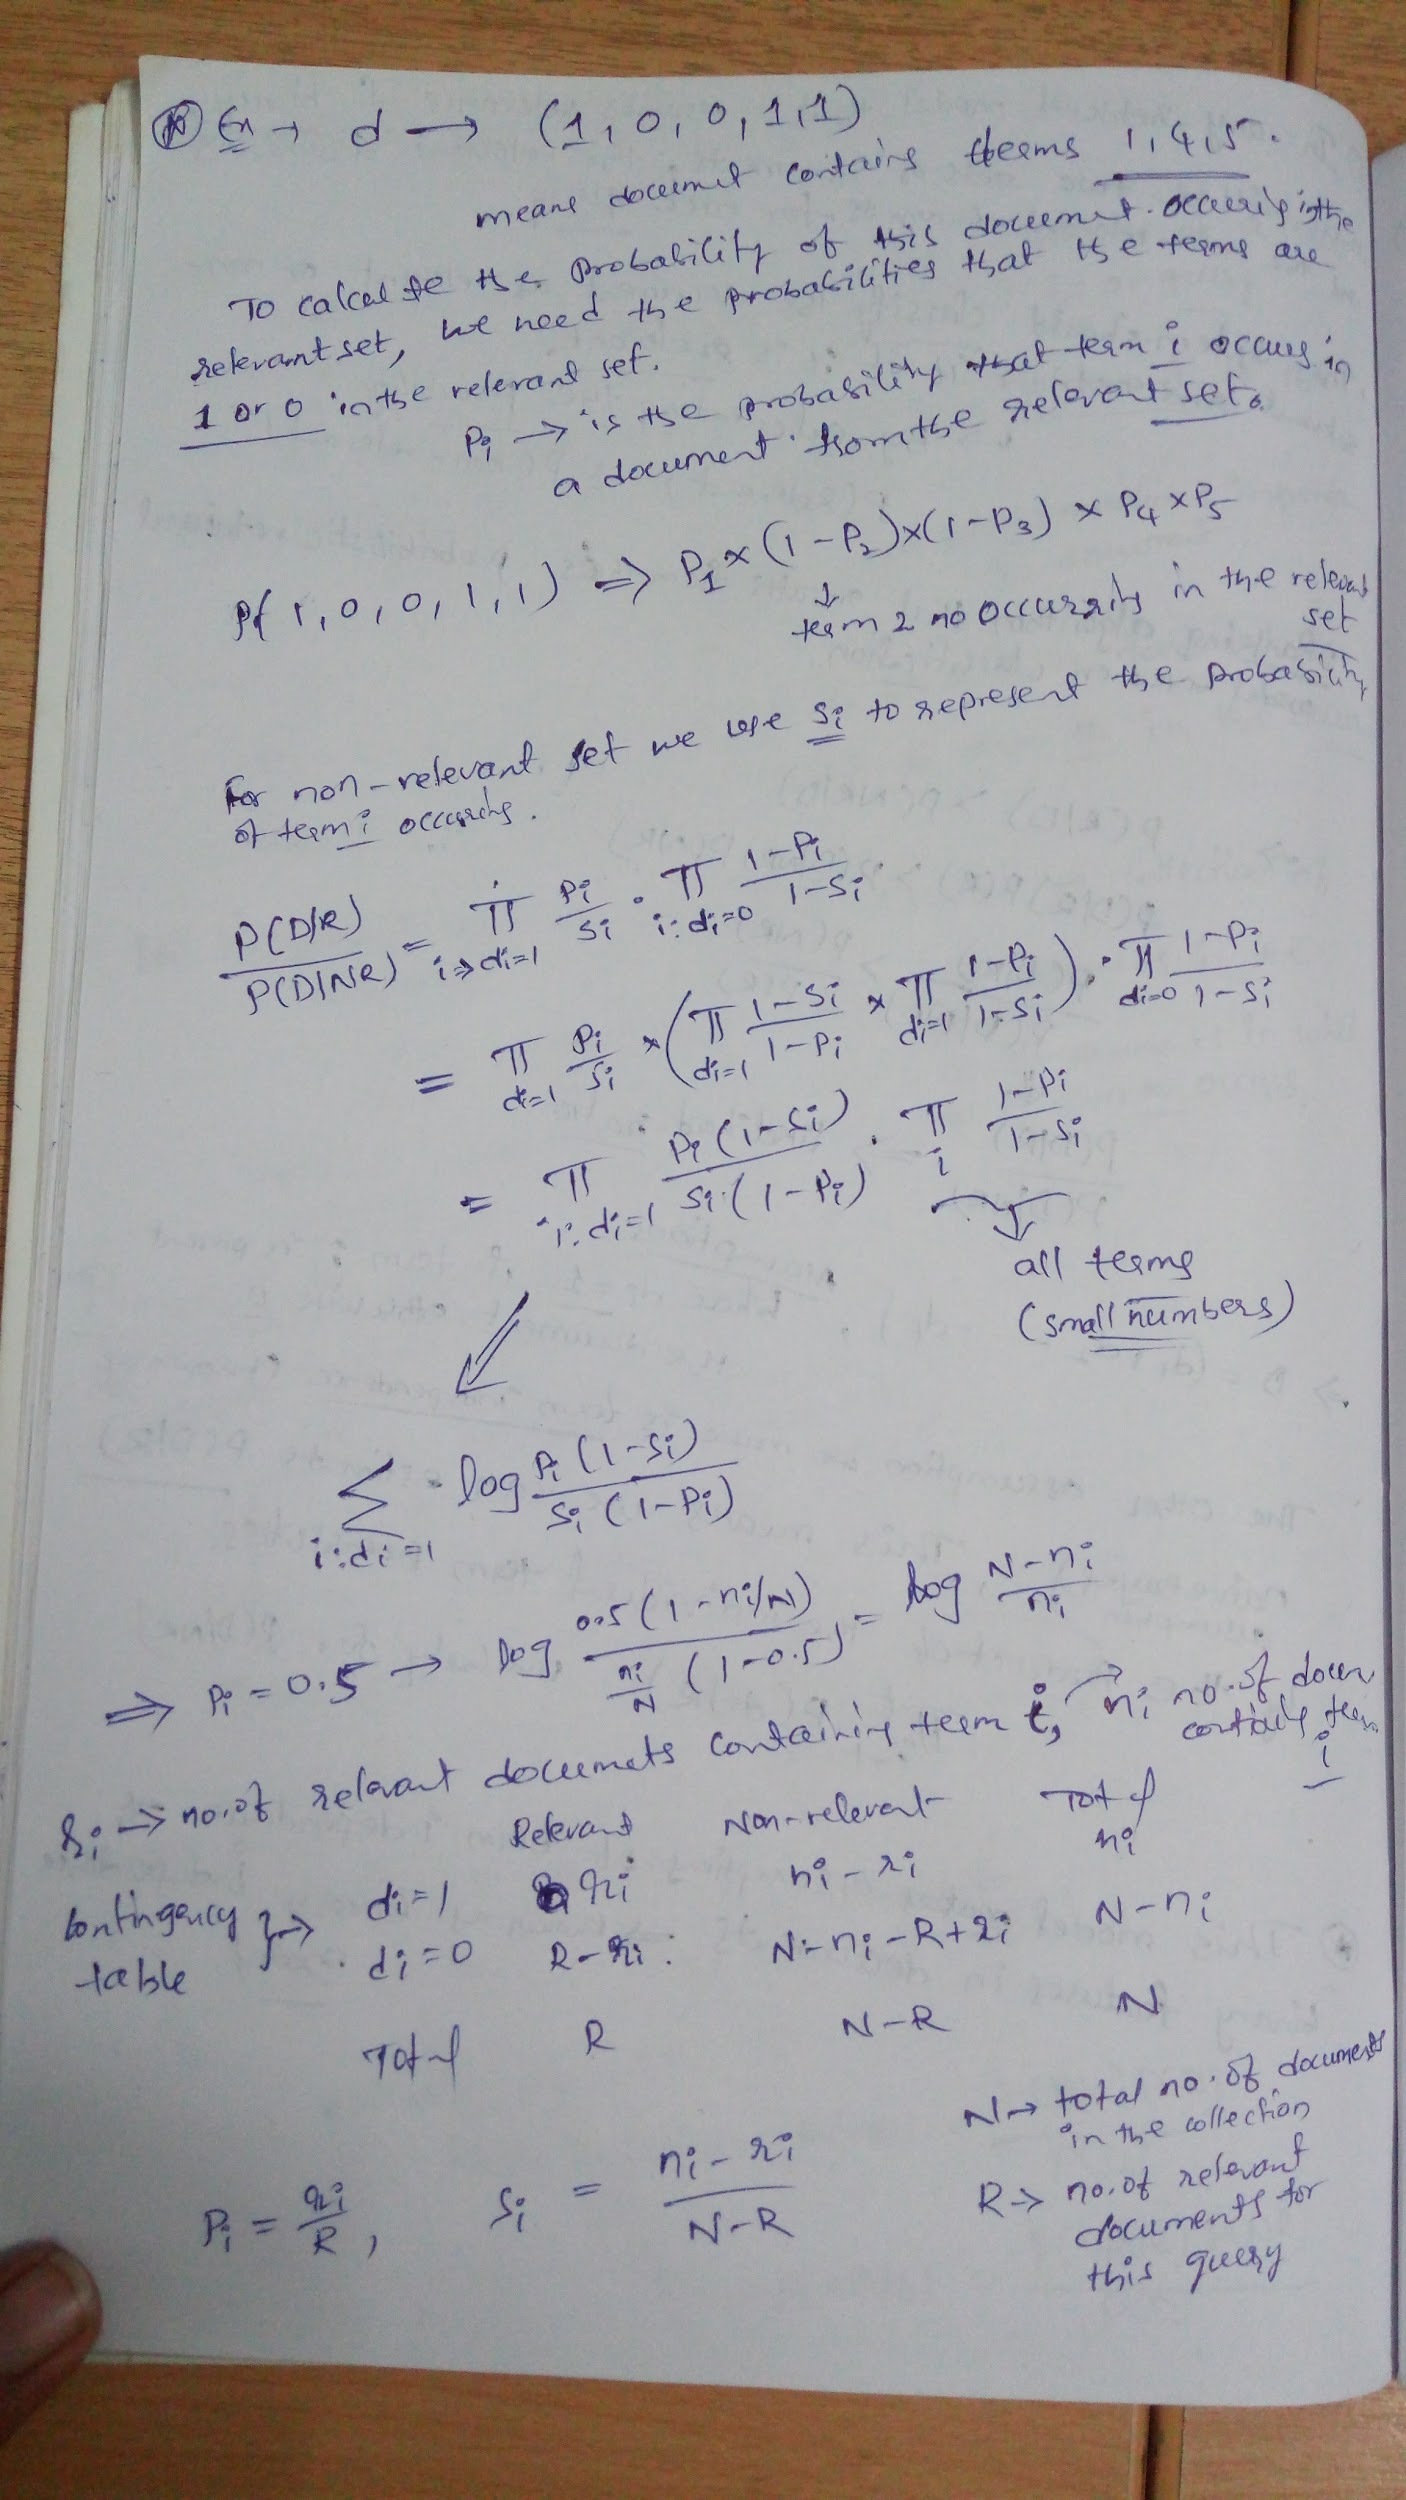 Ex → d → (1, 0, 0, 1, 1)
means document contains terms 1, 4, 5.
To calculate the probability of this document occuring in the
relevant set, we need the probabilities that the terms are
1 or 0 in the relevant set.
Pi → is the probability that term i occurs in
a document from the relevant set.
P( 1, 0, 0, 1, 1) ⇒ P1 × (1 − P2) × (1 − P3) × P4 × P5
↓
term 2 no occurring in the relevant
set
For non-relevant set we use Si to represent the probability
of term i occuring.
P(D/R) / P(D|NR) = Π i→di=1 Pi/Si · Π i:di=0 (1−Pi)/(1−Si)
= Π di=1 Pi/Si × ( Π di=1 (1−Si)/(1−Pi) × Π di=1 (1−Pi)/(1−Si) ) · Π di=0 (1−Pi)/(1−Si)
= Π i:di=1 Pi(1−Si) / Si·(1−Pi) · Π i (1−Pi)/(1−Si)
↓
all terms
(small numbers)
Σ i:di=1 log Pi(1−Si) / Si(1−Pi)
⇒ Pi = 0.5 → log 0.5(1−ni/N) / (ni/N (1−0.5)) = log (N−ni)/ni
ri → no. of relevant documets containing term i, → ni no. of docum
containg term
i
Relevant Non-relevant Total
di=1 ri ni − ri ni
contingency table } → di=0 R−ri N−ni−R+ri N−ni
Total R N−R N
N → total no. of documents
in the collection
Pi = ri/R , Si = (ni − ri)/(N−R)
R → no. of relevant
documents for
this query